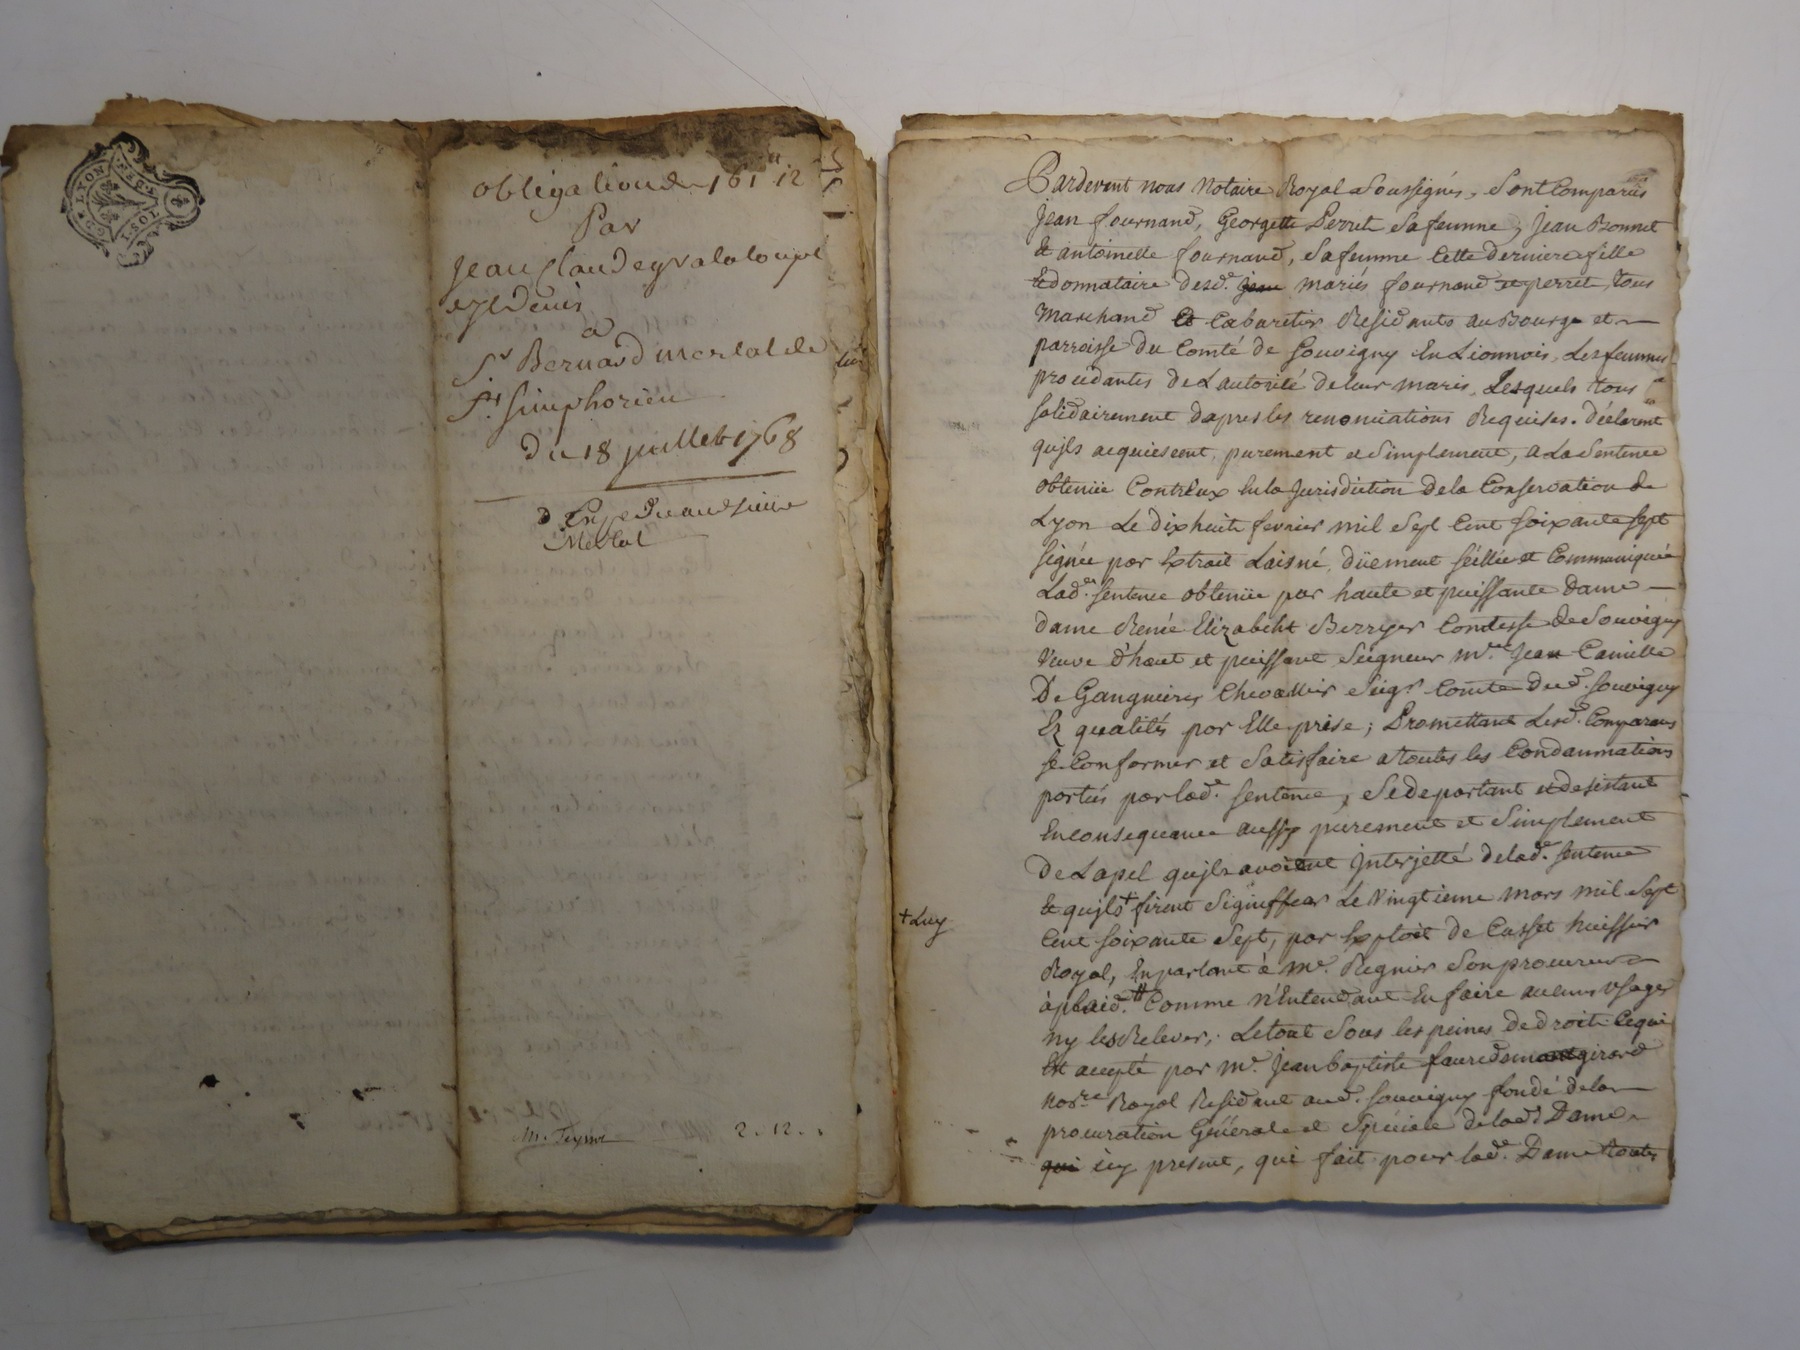 GEN DE LYON
1 SOL
obligation de 161 ll 12 s
Par
Jean Claude
et Denis
a
Sr Bernard merlat de
St simphorien
du 18 juillet 1768
Merlat
M. Teyssot
2 . 12 .
Pardevent nous Notaire Royal Soussignés, Sont Comparus
Jean fournand, Georgette Perret Sa femme, Jean Bonnet
Et antoinette fournand, Sa femme Cette derniere fille
Et donnataire desd. mariés fournand et perret, tous
Marchand Et Cabaretier Residants au Bourg et
parroisse du Comté de Souvigny En Lionnois, Les femmes
procedantes de L'autorité de leur maris, Lesquels tous
solidairement dapres les renonciations Requises. déclarent
quils acquiescent, purement et Simplement, a La Sentence
obtenüe Contr'Eux En la Jurisdiction de la Conservation de
Lyon Le dixhuit fevrier mil Sept Cent Soixante Sept
signée par Extrait Laisné, düement scellée et Communiquée
Lad. sentence obtenüe par haute et puissante Dame
dame Renée Elizabeht Berryer Comtesse de Souvigny
Veuve d'haut et puissant Seigneur mre. Jean Camille
De Gangnieres Chevallier Seigr. Comte dud. Souvigny
Ez qualités par Elle prise; Promettant Lesd. Comparans
se Conformer et Satisfaire a toutes les Condannations
portées par lad. sentence, Se departant et desistant
En consequance aussy purement et Simplement
De L'apel quils avoient Interjetté de lad. sentence
Et quils + firent Signiffier Le Vingtieme mars mil Sept
+ Luy
Cent soixante Sept, par Exploit de Cusset huissier
Royal, En parlant à Me. Regnier Son procureur
à plaid. # Comme N'Entendant En faire aucuns usages
ny les Relever; Le tout Sous les peines de droit Ce qui
Est accepté par Me. Jean baptiste faure de montgirard
nore. Royal Residant aud. Souvigny fondé de la
procuration Générale et Speciale de lad. Dame
qui icy present, qui fait pour lad. Dame toutes